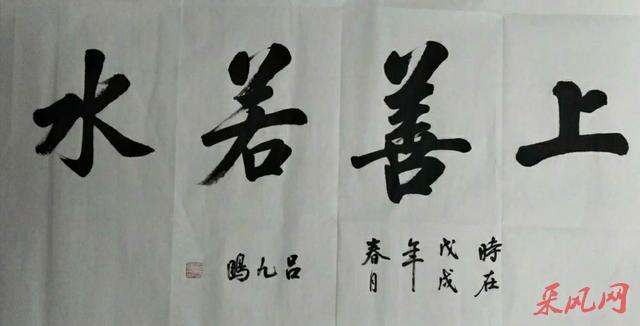 上善若水
時在戊戌年春月
吕九鹏
采风网